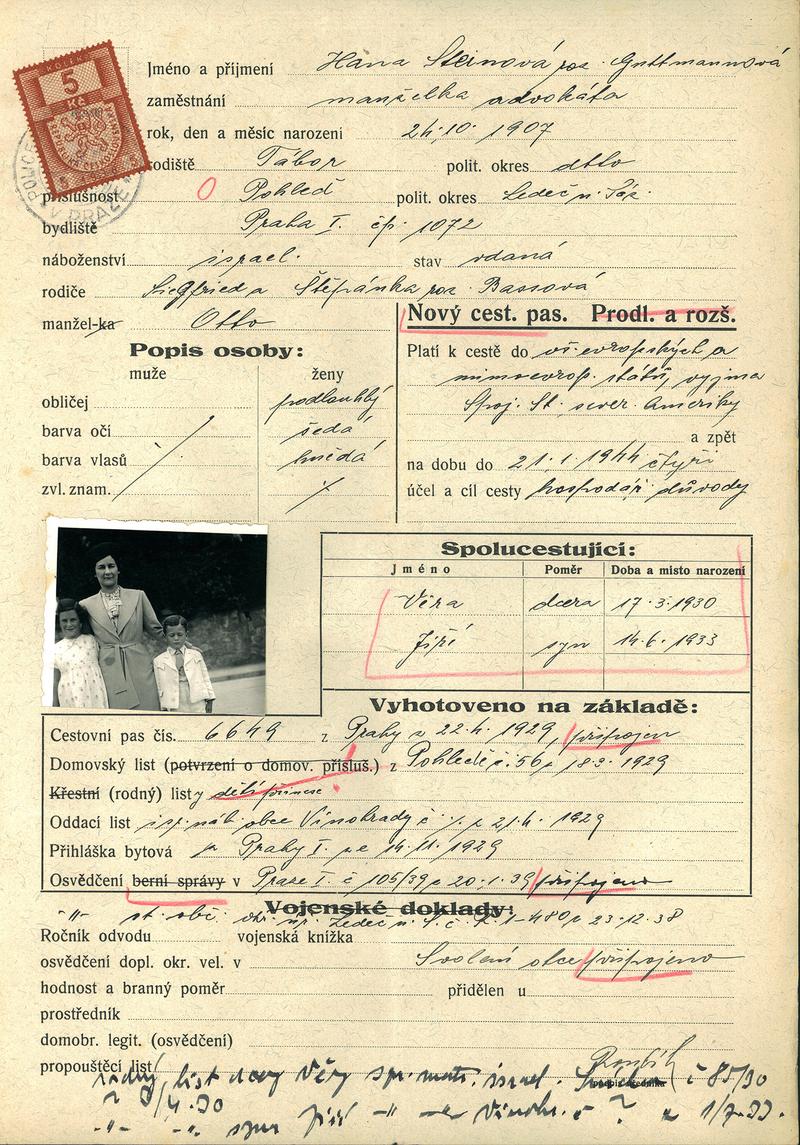 KOLEK
5
Kč
POLICEJNÍ
V PRAZE
Jméno a příjmení Hana Steinová roz. Guttmannová
zaměstnání manželka advokáta
rok, den a měsíc narození 24.10.1907
rodiště Tábor polit. okres dtto
příslušnost O Pohleď polit. okres Ledeč n. Sáz.
bydliště Praha I. čp. 1072
náboženství israel. stav vdaná
rodiče Siegfried a Štěpánka roz. Bassová
manžel-ka Otto
Nový cest. pas. Prodl. a rozš.
Popis osoby:
muže ženy
obličej podlouhlý
barva očí šedá
barva vlasů hnědá
zvl. znam. /
Platí k cestě do vš. evropských a
mimoevrop. států, vyjma
Spoj. St. sever. Ameriky
a zpět
na dobu do 21.1.1944 čtyři
účel a cíl cesty hospodář. důvody
Spolucestující:
Jméno Poměr Doba a místo narození
Věra dcera 17.3.1930
Jiří syn 14.6.1933
Vyhotoveno na základě:
Cestovní pas čís. 6649 z Prahy z 22.4.1929, připojen
Domovský list (potvrzení o domov. přísluš.) z Pohledě č. 56 z 18.3.1929
Křestní (rodný) listy dětí přinese
Oddací list isr. náb. obce Vinohrady č /. z 21.4.1929
Přihláška bytová z Prahy I. ze 14.11.1929
Osvědčení berní správy v Praze I. č 105/39 z 20.1.39 připojeno
-"- st. obč. okr. úř. Ledeč n. S. č. 1-480 z 23.12.38
Vojenské doklady:
Ročník odvodu vojenská knížka
osvědčení dopl. okr. vel. v Svolení otce připojeno
hodnost a branný poměr přidělen u
prostředník
domobr. legit. (osvědčení)
propouštěcí list
podpis úředníka
rodný list dcery Věry spr. mat. israel. č 85/30
z 3/4.30
-"- -"- syna Jiří -"- Vinohr. č ? z 1/7.33.